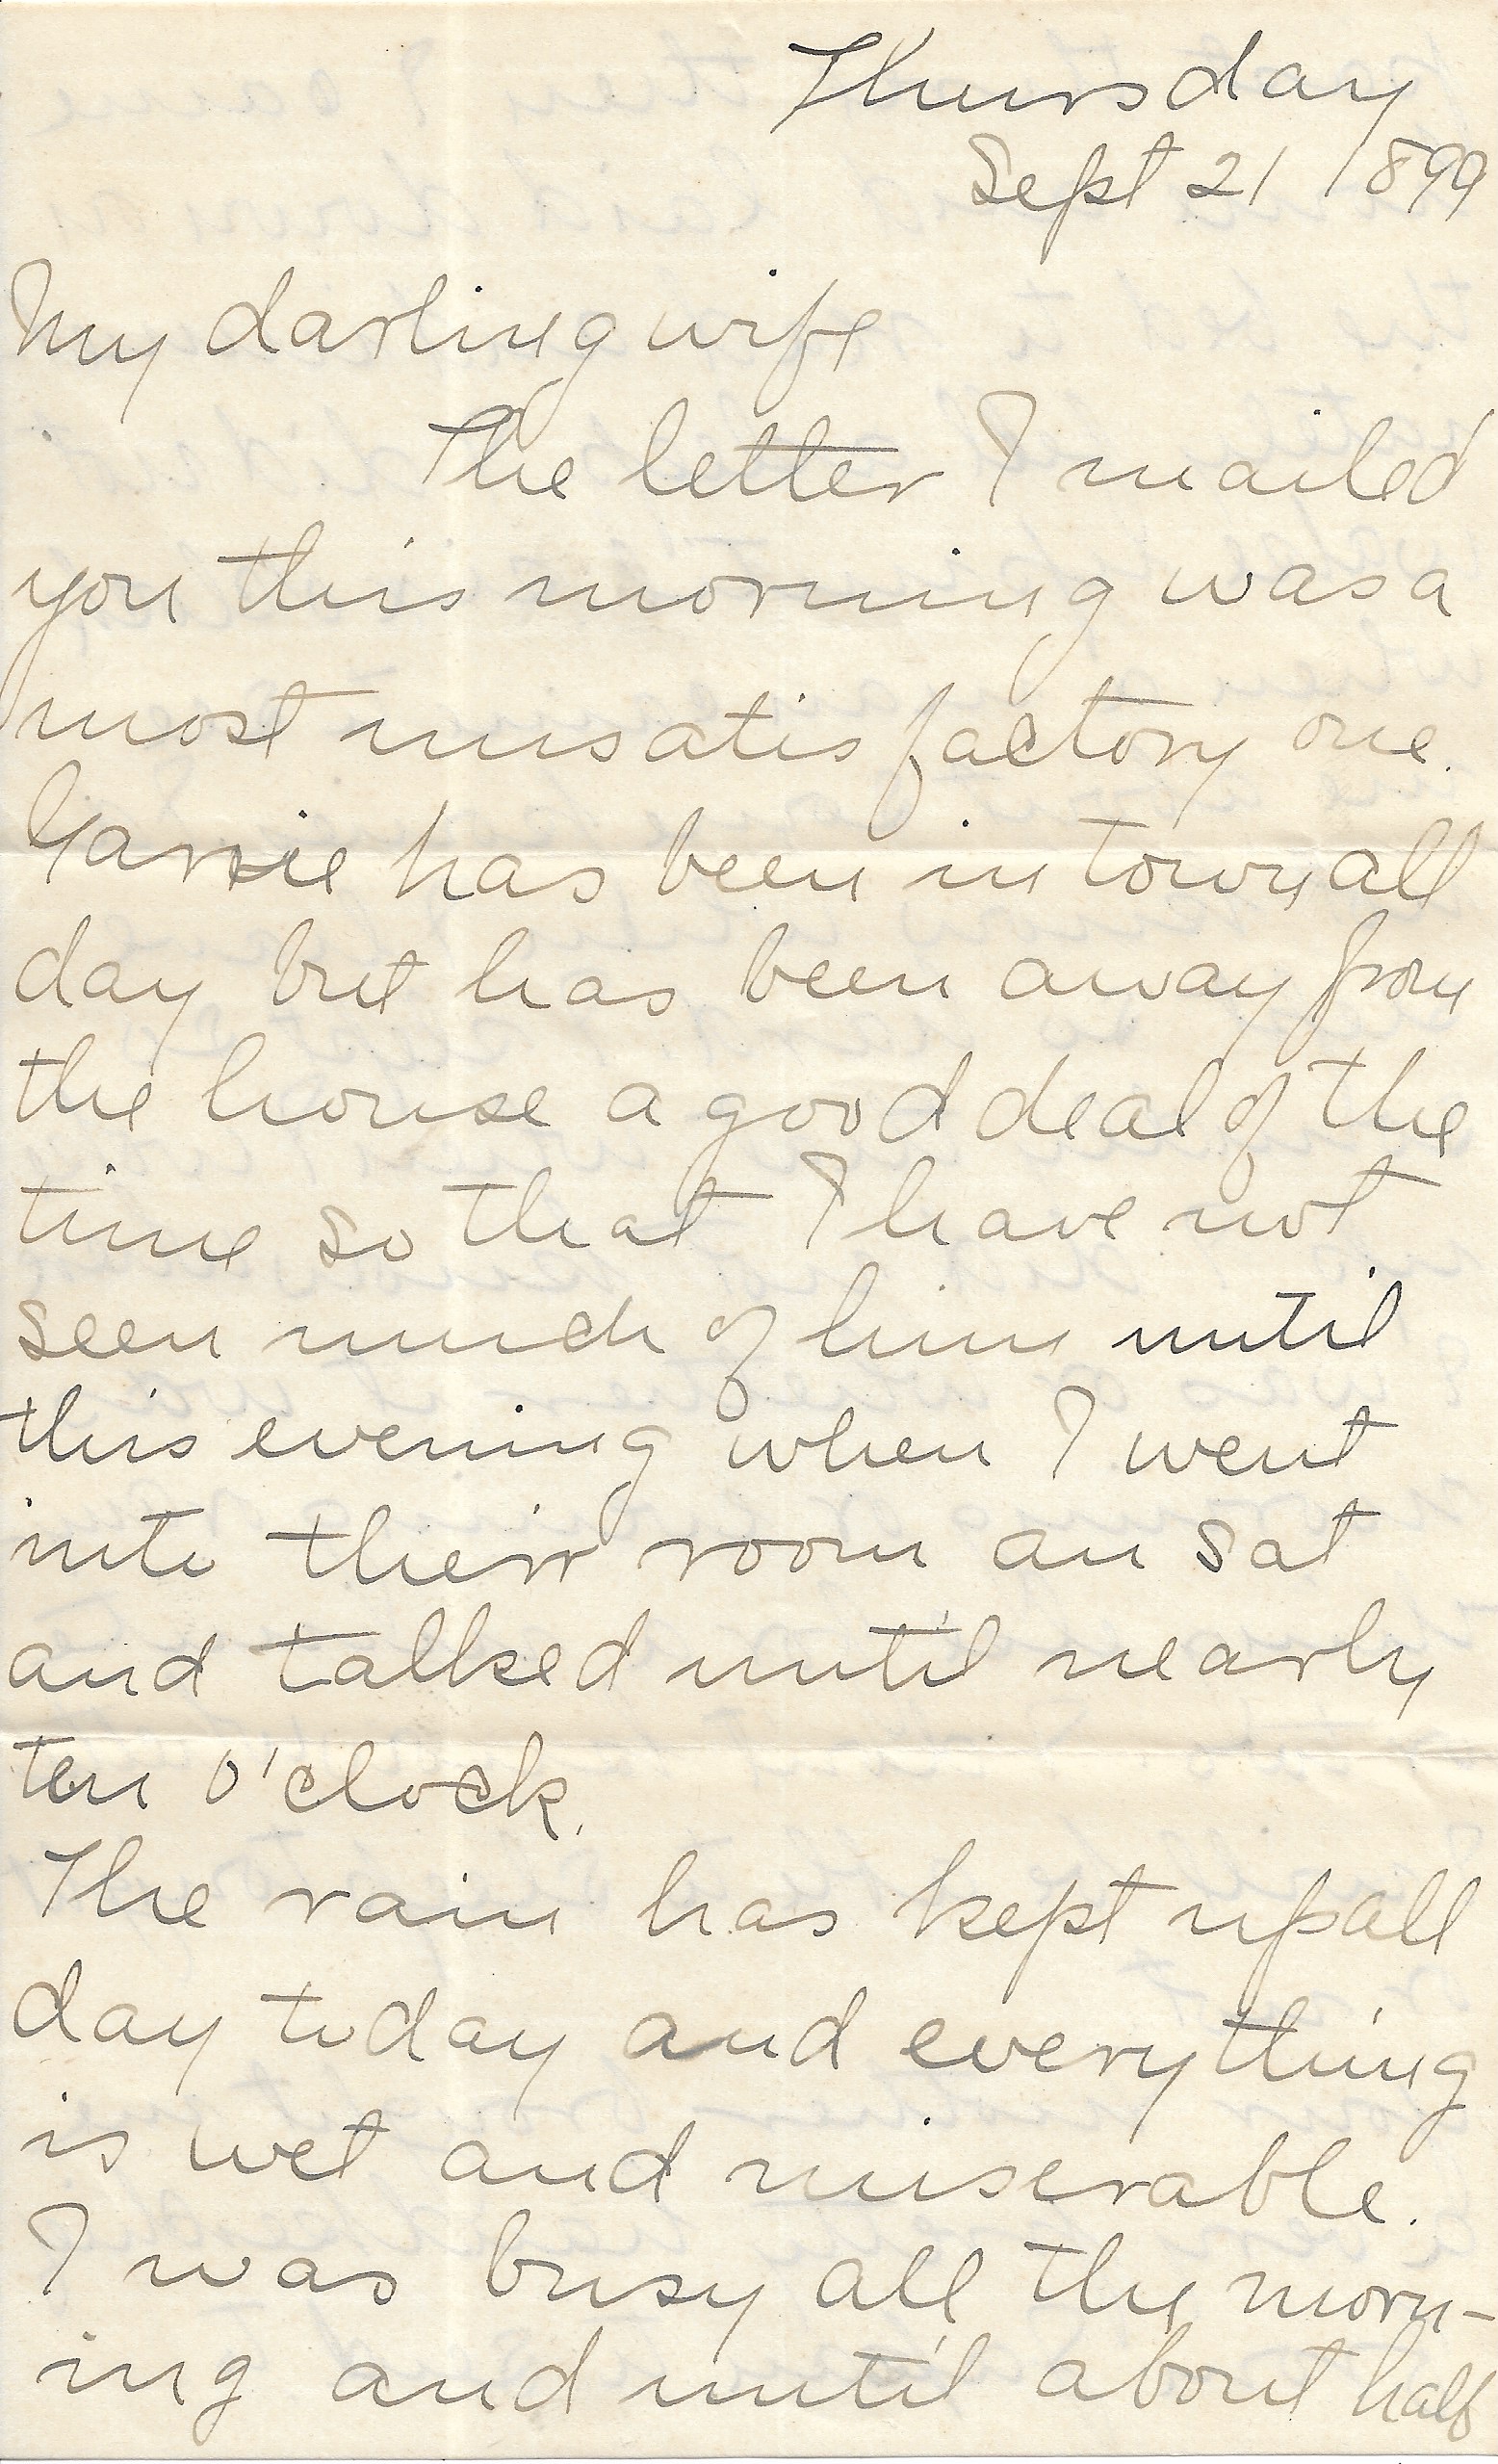 Thursday
Sept 21 1899
My darling wife
The letter I mailed
you this morning was a
most unsatisfactory one.
has been in town all
day but has been away from
the house a good deal of the
time so that I have not
seen much of him until
this evening when I went
into their room an sat
and talked until nearly
ten o'clock.
The rain has kept up all
day today and everything
is wet and miserable.
I was busy all the morn-
ing and until about half